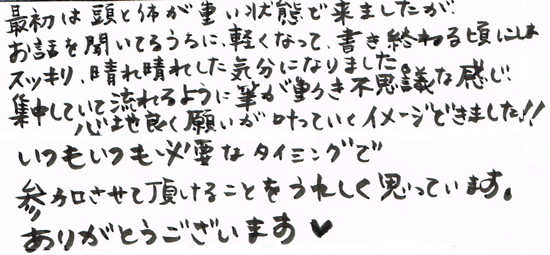 最初は頭と体が重い状態で来ましたが、
お話を聞いてるうちに、軽くなって、書き終わる頃には
スッキリ、晴れ晴れした気分になりました。
集中していて流れるように筆が動き不思議な感じ
心地良く願いが叶っていくイメージできました!!
いつもいつも必要なタイミングで
参加させて頂けることをうれしく思っています。
ありがとうございます♥